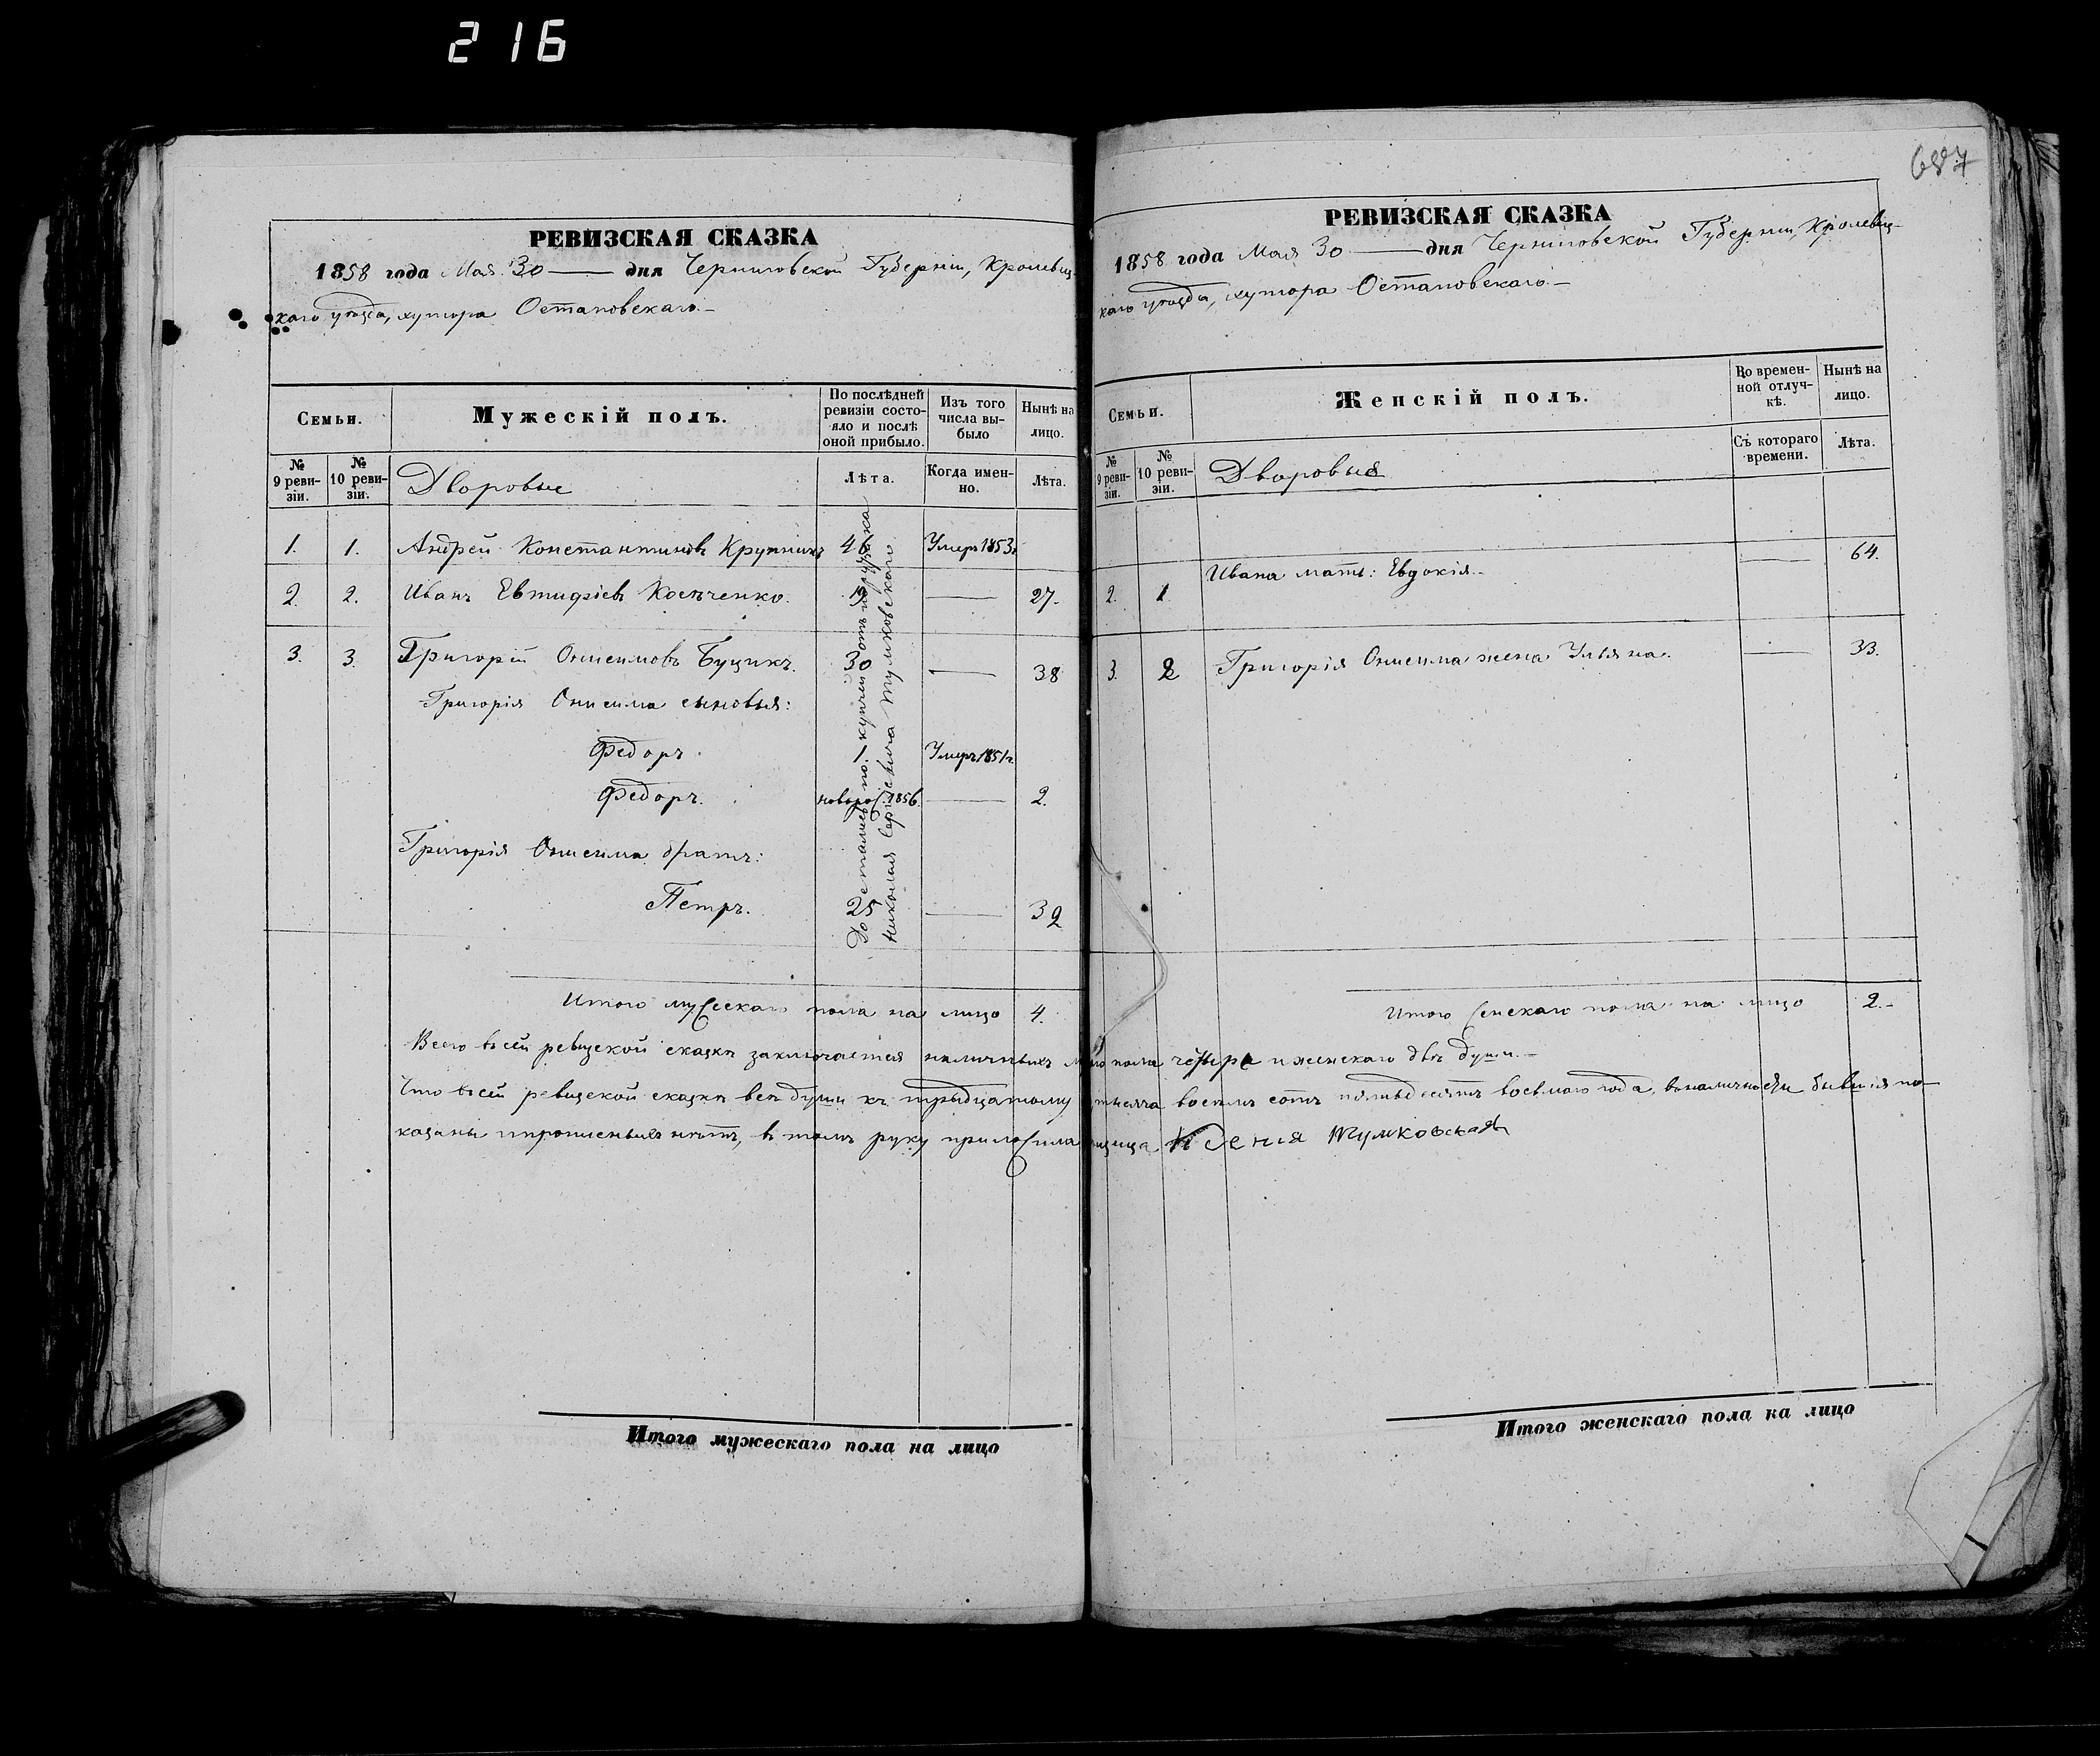 216
687
РЕВИЗСКАЯ СКАЗКА
1858 года Мая 30 — дня Черниговской Губерніи, Кролевец-
каго уѣзда, хутора Остановскаго.—
Семьи.
Мужескій полъ.
По послѣдней ревизіи состо-
яло и послѣ
оной прибыло.
Изъ того
числа вы-
было
Нынѣ на
лицо.
№
9 реви-
зіи.
№
10 реви-
зіи.
Дворовые
Лѣта.
Когда имен-
но.
Лѣта.
1. 1. Андрей Константиновъ 46 Умеръ 1853г
2. 2. Иванъ Евтифіевъ Косѣченко. 19 — 27.
3. 3. Григорій Онисимовъ Буцикъ. 30 — 38
Григорія Онисима сыновья:
Федоръ. 1 Умеръ 1851г.
Федоръ. новорож. 1856. — 2.
Григорія Онисима братъ:
Петръ. 25 — 32
Достались по купчей отъ
Николая Сергіевича Тумковскаго
Итого мужескаго пола на лицо 4.
Итого мужескаго пола на лицо
РЕВИЗСКАЯ СКАЗКА
1858 года Мая 30 — дня Черниговской Губерніи, Кролевец-
каго уѣзда, хутора Остановскаго.—
Семьи.
Женскій полъ.
Во времен-
ной отлуч-
кѣ.
Нынѣ на
лицо.
№
9 реви-
зіи.
№
10 реви-
зіи.
Дворовыя
Съ котораго
времени.
Лѣта.
2. 1 Ивана мать: Евдокія.— — 64.
3. 2 Григорія Онисима жена Ульяна. — 33.
Итого женскаго пола на лицо 2.—
Всего въ сей ревизской сказкѣ заключается наличныхъ пола четыре и женскаго двѣ души.—
Что въ сей ревизской сказкѣ всѣ души къ тридцатому тысяча восемь сотъ пятьдесятъ восьмаго года, въ наличности бывшія по-
казаны и прописныхъ нѣтъ, в томъ руку приложила Ксенія Тумковская
Итого женскаго пола на лицо